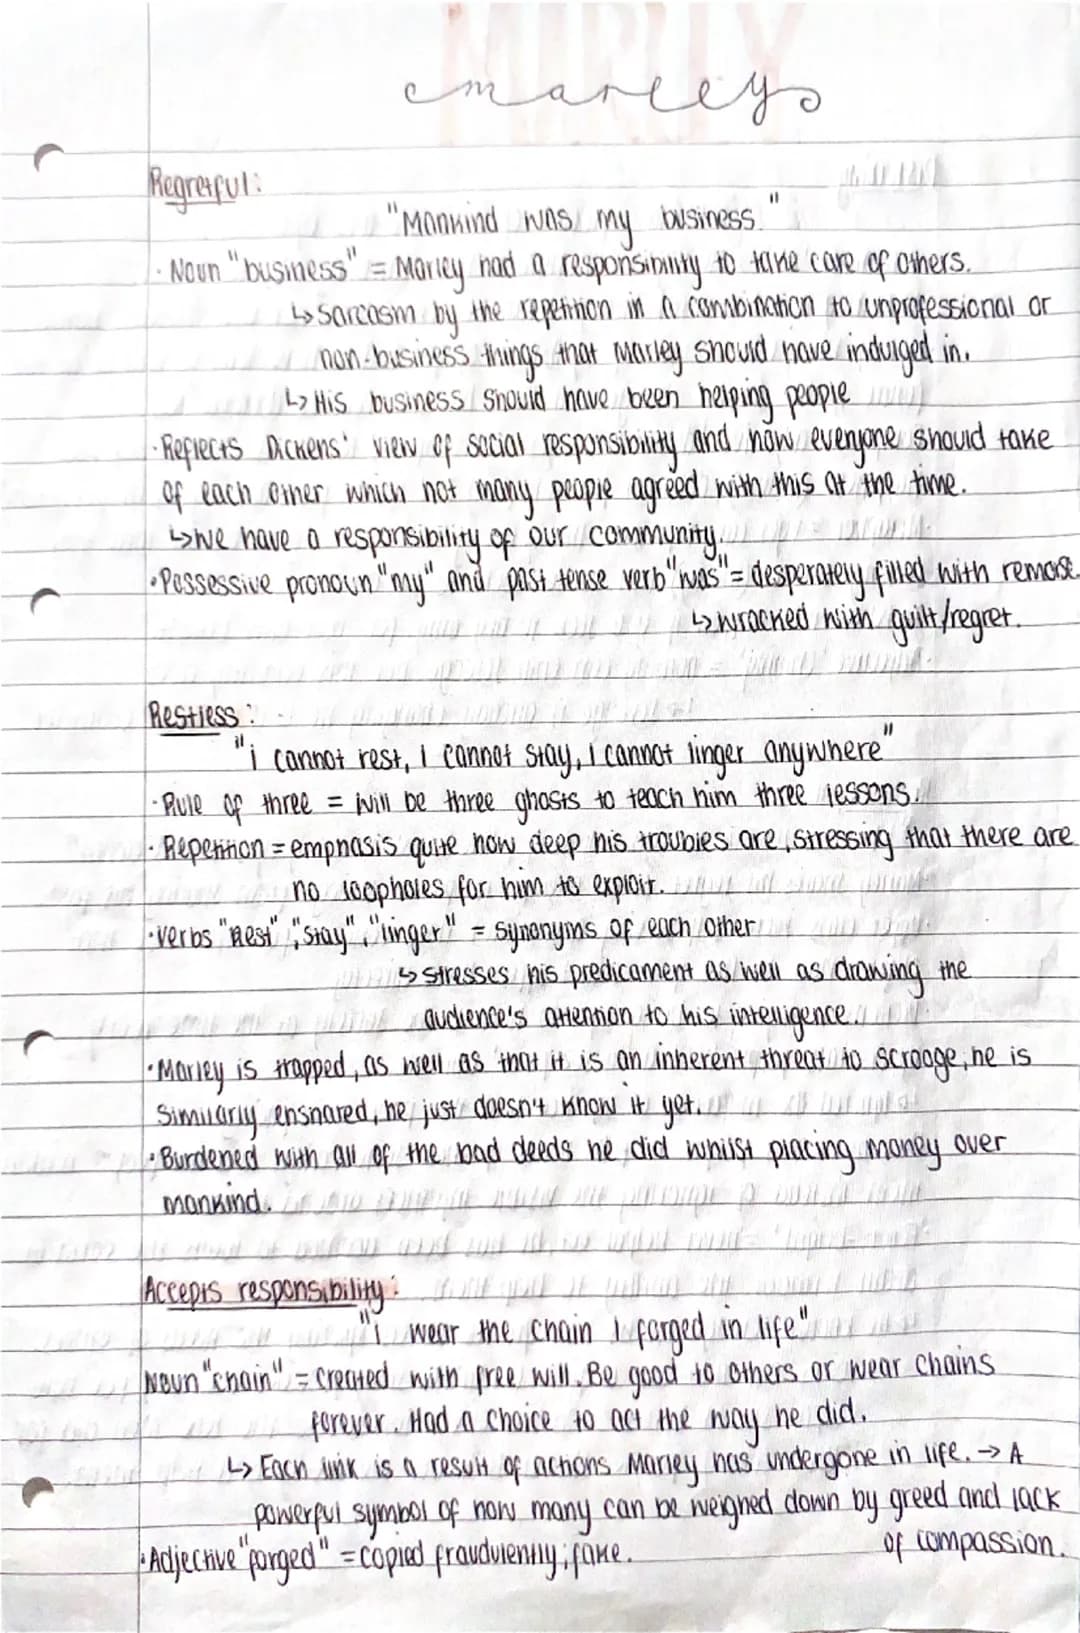 marley
Regretful:
"Mankind was my business."
· Noun "business" = Marley had a responsibility to take care of others.
↳ Sarcasm by the repetition in a combination to unprofessional or
non-business things that Marley should have indulged in.
↳ His business should have been helping people
· Reflects Dickens' view of social responsibility and how everyone should take
of each other which not many people agreed with this at the time.
↳ We have a responsibility of our community.
· Possessive pronoun "my" and past tense verb "was" = desperately filled with remorse.
↳ wracked with guilt/regret.
Restless:
"i cannot rest, I cannot stay, I cannot linger anywhere"
· Rule of three = will be three ghosts to teach him three lessons.
· Repetition = emphasis quite how deep his troubles are, stressing that there are
no loopholes for him to exploit.
· verbs "Rest", "stay", "linger" = synonyms of each other
↳ stresses his predicament as well as drawing the
audience's attention to his intelligence.
· Marley is trapped, as well as that it is an inherent threat to scrooge, he is
similarly ensnared, he just doesn't know it yet.
· Burdened with all of the bad deeds he did whilst placing money over
mankind.
Accepts responsibility:
"i wear the chain I forged in life"
Noun "chain" = created with free will. Be good to others or wear chains
forever. Had a choice to act the way he did.
↳ Each link is a result of actions Marley has undergone in life. → A
powerful symbol of how many can be weighed down by greed and lack
of compassion.
· Adjective "forged" = copied fraudulently; fake.